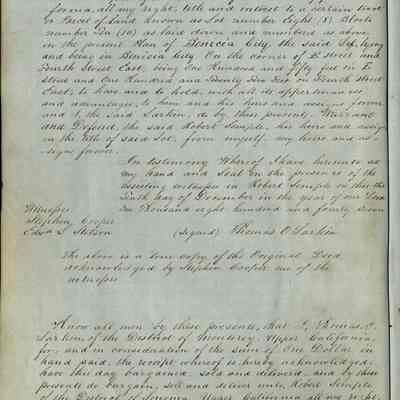 fornia, all my right, title and intrest to a certain tract
or Parcel of Land known as Lot number Eight (8) Block
number Ten (10) as laid down and numbered as above
in the present Plan of Benecia City, the said Lot, lying
and being in Benecia City, On the corner of E Street and
Fourth Street East, being One Hundred and fifty feet on E
Street and One Hundred and Twenty five feet on Fourth Street
East, to have and to hold, with all its appertenances
and advantages, to him and his heirs and assigns forever
and I, the said Larkin, do by these presents, Warrant
and Defend, the said Robert Semple, his heirs and assigns
in the title of said Lot, from myself, my heirs and as=
signs forever.
In testimony Whereof I have hereunto set
my hand and Seal in the presence of the
assisting witnesses to Robert Semple on this the
Tenth day of December in the year of our Lord
One Thousand eight hundred and fourty Seven
Witnesses
Stephen Cooper
Edwd L Stetson
(Signed) Thomas O Larkin
The above is a true copy of the Original Deed
acknowledged by Stephen Cooper one of the
witnesses
Know all men by these presents, that I, Thomas O.
Larkin of the District of Monterey, Upper California,
for, and in consideration of the sum of One Dollar in
hand paid, the receipt whereof is hereby acknowledged,
have this day bargained sold and delivered, and by these
presents do bargain, sell and deliver unto Robert Semple
of the District of Sonoma, Upper California all my right,